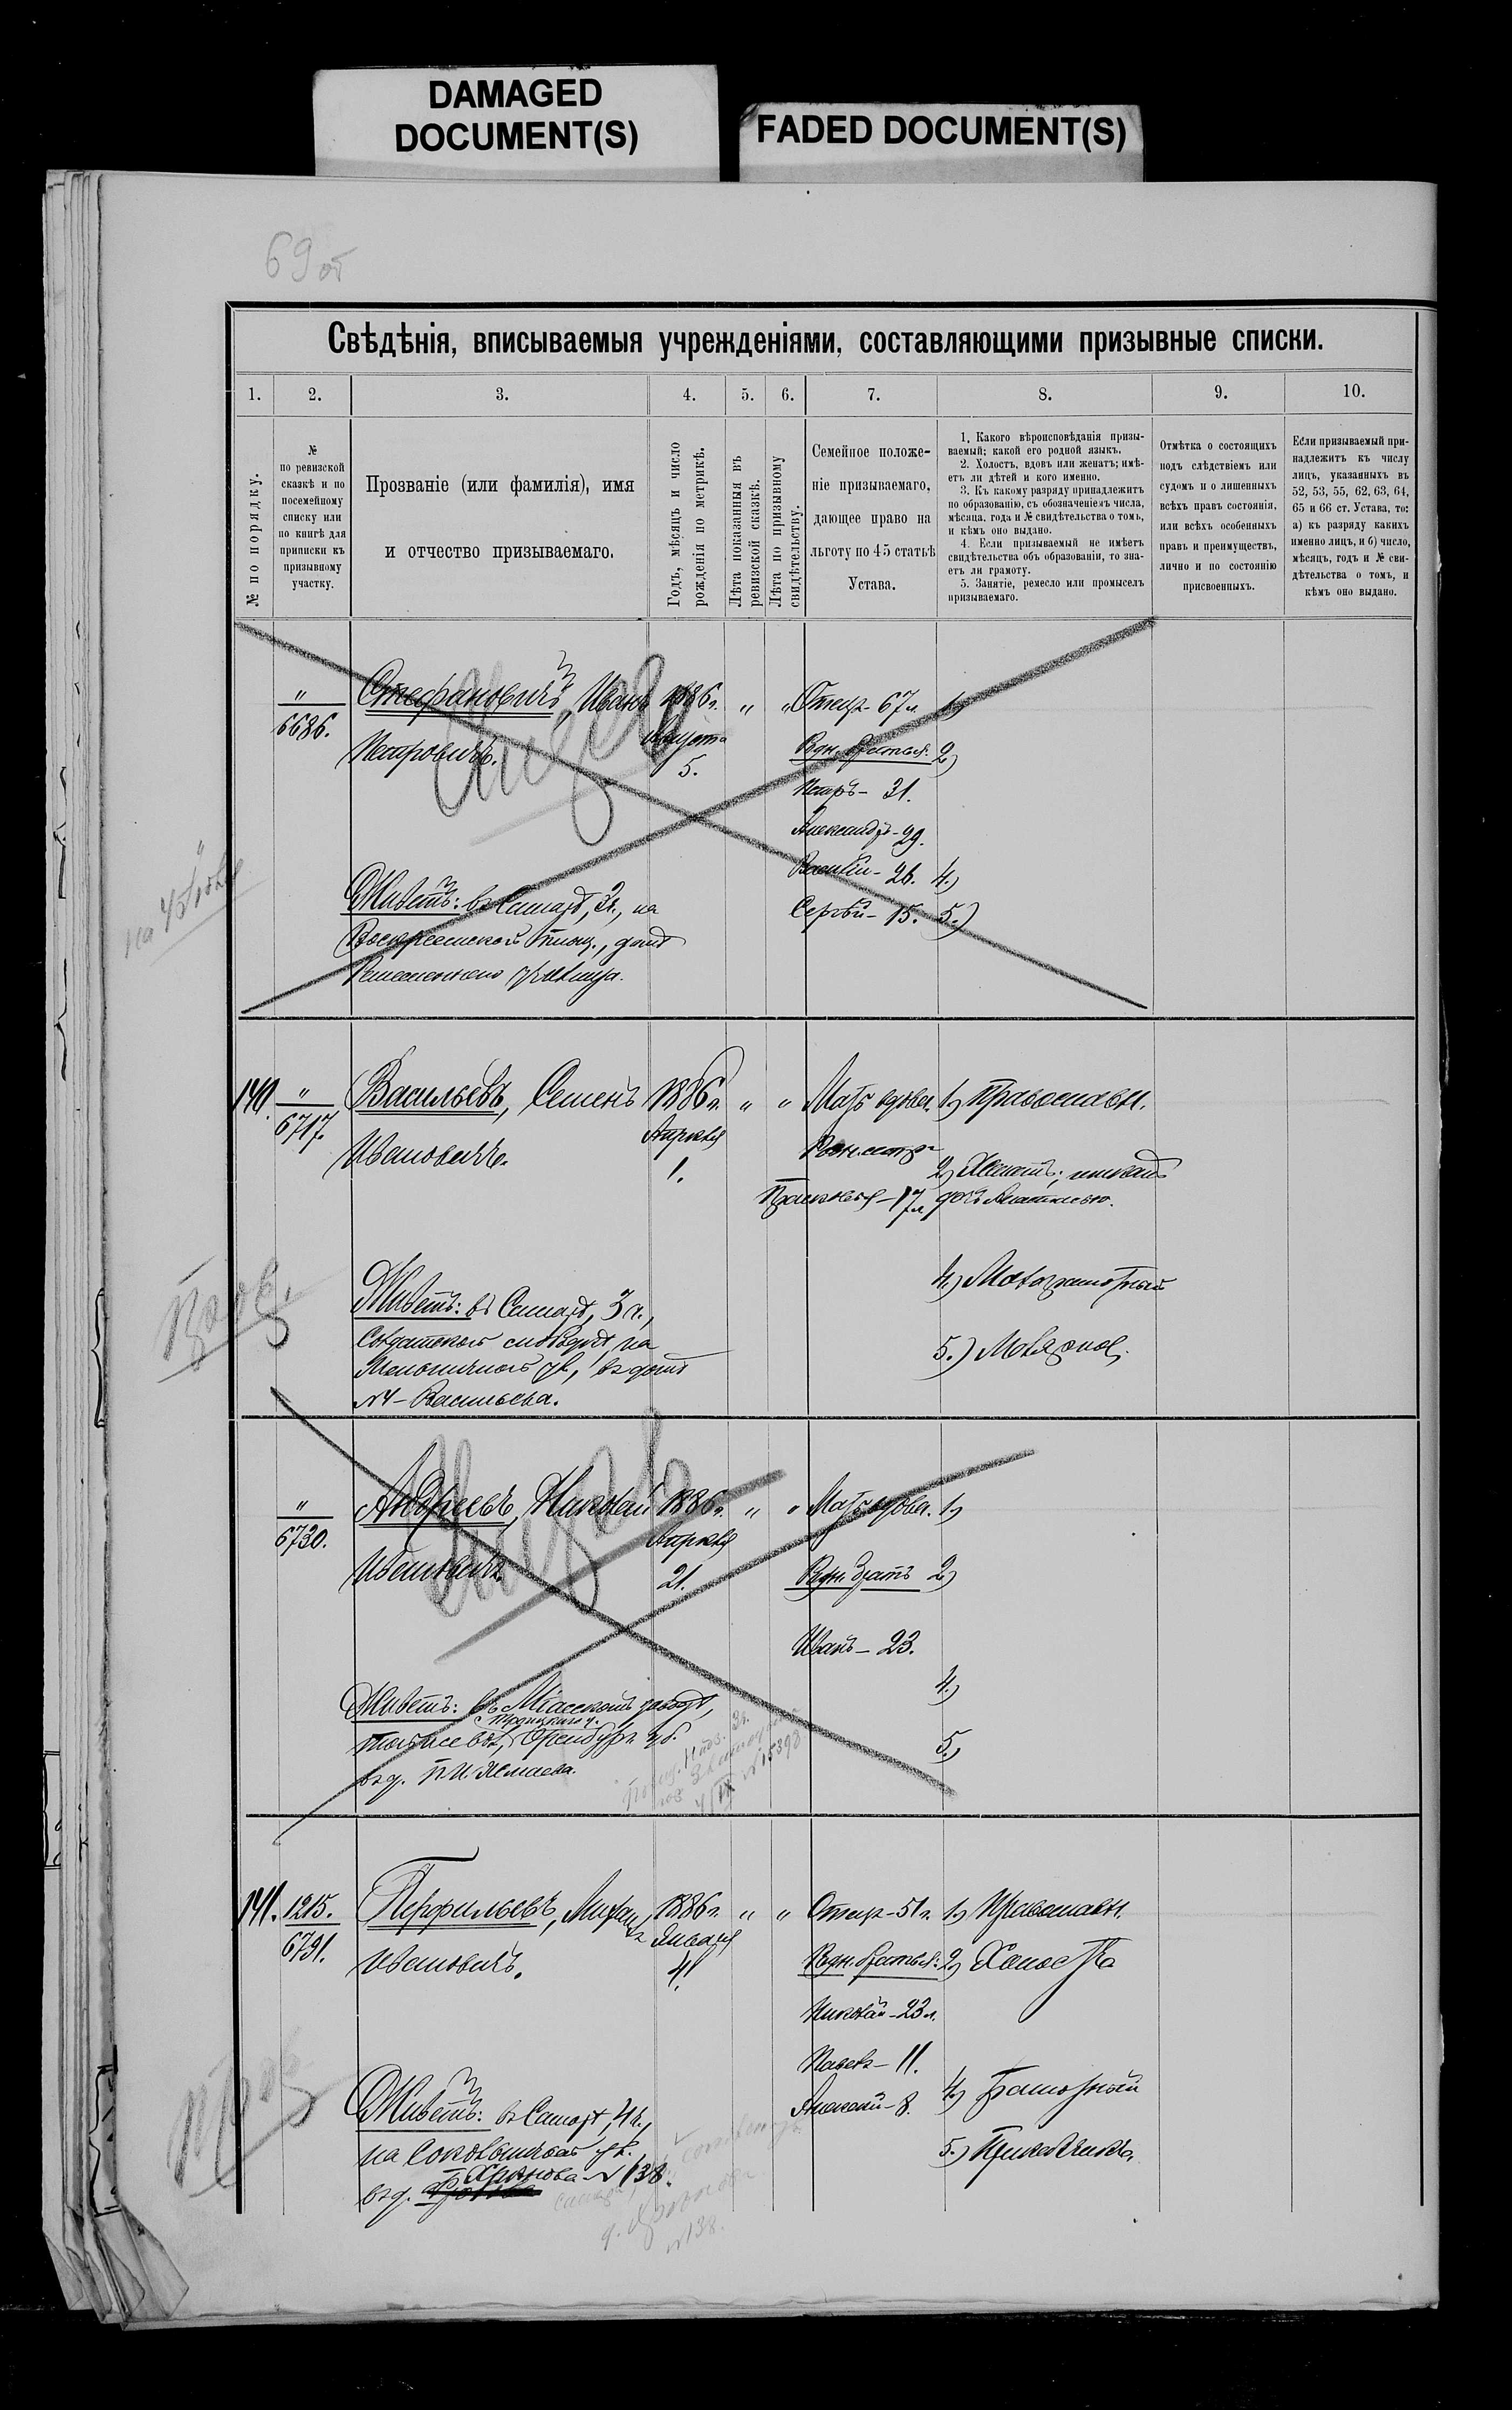 DAMAGED
DOCUMENT(S)
FADED DOCUMENT(S)
69 об
Свѣдѣнія, вписываемыя учрежденіями, составляющими призывные списки.
1.
2.
3.
4.
5.
6.
7.
8.
9.
10.
№ по порядку.
№
по ревизской
сказкѣ и по
посемейному
списку или
по книгѣ для
приписки къ
призывному
участку.
Прозваніе (или фамилія), имя
и отчество призываемаго.
Годъ, мѣсяцъ и число
рожденія по метрикѣ.
Лѣта показанныя въ
ревизской сказкѣ.
Лѣта по призывному
свидѣтельству.
Семейное положе-
ніе призываемаго,
дающее право на
льготу по 45 статьѣ
Устава.
1. Какого вѣроисповѣданія призы-
ваемый; какой его родной языкъ.
2. Холостъ, вдовъ или женатъ; имѣ-
етъ ли дѣтей и кого именно.
3. Къ какому разряду принадлежитъ
по образованію, съ обозначеніемъ числа,
мѣсяца, года и № свидѣтельства о томъ,
и кѣмъ оно выдано.
4. Если призываемый не имѣетъ
свидѣтельства объ образованіи, то зна-
етъ ли грамоту.
5. Занятіе, ремесло или промыселъ
призываемаго.
Отмѣтка о состоящихъ
подъ слѣдствіемъ или
судомъ и о лишенныхъ
всѣхъ правъ состоянія,
или всѣхъ особенныхъ
правъ и преимуществъ,
лично и по состоянію
присвоенныхъ.
Если призываемый при-
надлежитъ къ числу
лицъ, указанныхъ въ
52, 53, 55, 62, 63, 64,
65 и 66 ст. Устава, то:
а) къ разряду какихъ
именно лицъ, и б) число,
мѣсяцъ, годъ и № сви-
дѣтельства о томъ, и
кѣмъ оно выдано.
" 6686.
Стефановичъ, Иванъ
Петровичъ.
1886 г.
Августа
5.
" "
Отецъ - 67 л.
Родн. братья:
Петръ - 31.
Александръ - 29.
Василій - 26.
Сергѣй - 15.
1)
2)
4.)
5.)
Живетъ: въ Самарѣ, 3 ч., на
Воскресенской площ., домъ
Ремесленнаго училища.
140. " 6717.
Васильевъ, Семенъ
Ивановичъ.
1886 г.
Апрѣля
1.
" "
Мать вдова.
Родн. сестра
Прасковья - 17 л.
1) Православн.
2) Женатъ; имѣетъ
дочь Анастасію.
4.) Малограмотный
5.) Маляръ
Живетъ: въ Самарѣ, 3 ч.,
Солдатской слободкѣ, на
Мельничной ул., въ домѣ
№ 4 - Васильева.
Пров.
" 6730.
Андреевъ, Николай
Ивановичъ.
1886 г.
Апрѣля
21.
" "
Мать вдова.
Родн. братъ
Иванъ - 23.
1)
2)
4.)
5.)
Живетъ: въ Міасскомъ заводѣ,
Троицкаго у.
той же вол., Оренбург. губ.
въ д.
№ 15390
141. 1215. 6791.
Перфильевъ, Михаилъ
Ивановичъ.
1886 г.
Января
4.
" "
Отецъ - 51 г.
Родн. братья:
Николай - 23 л.
Павелъ - 11.
Алексѣй - 8.
1) Православн.
2) Холостъ
4.) Грамотный
5.) Приказчикъ.
Пров.
Живетъ: въ Самарѣ, 4 ч.,
на Соловьиной ул.
въ д. № 138.
№ 138.